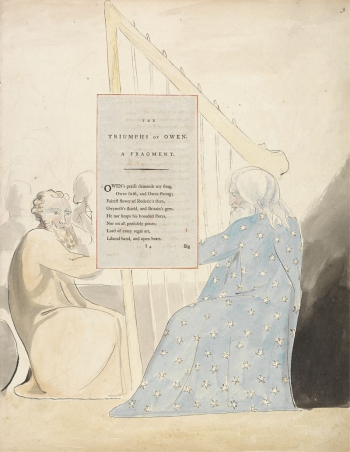 THE
TRIUMPHS OF OWEN.
A FRAGMENT.
OWEN's praise demands my song,
Owen swift, and Owen strong;
Fairest flower of Roderic's stem,
Gwyneth's shield, and Britain's gem.
He nor heaps his brooded stores,
Nor on all profusely pours;
Lord of every regal art,
Liberal hand, and open heart.
Big